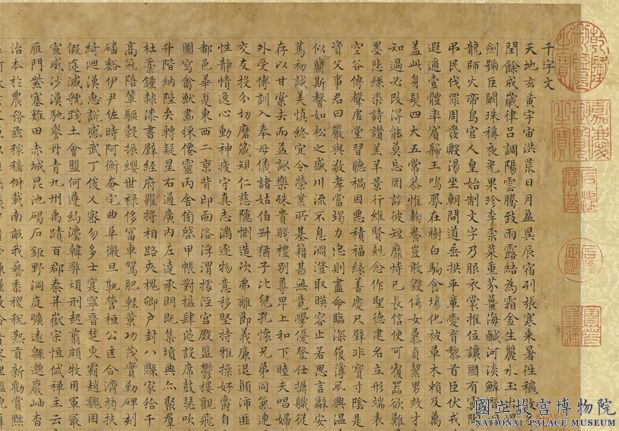 千字文
天地玄黃宇宙洪荒日月盈昃辰宿列張寒來暑往穐
閏餘成歲律呂調陽雲騰致雨露結為霜金生麗水玉
劍號巨闕珠稱夜光果珍李柰菜重芥薑海鹹河淡鱗
龍師火帝鳥官人皇始制文字乃服衣裳推位讓國有虞
弔民伐罪周發殷湯坐朝問道垂拱平章愛育黎首臣伏戎
遐邇壹體率賓歸王鳴鳳在樹白駒食場化被草木賴及萬
蓋此身髮四大五常恭惟鞠養豈敢毀傷女慕貞絜男效才
知過必改得能莫忘罔談彼短靡恃己長信使可覆器欲難
墨悲絲染詩讚羔羊景行維賢剋念作聖德建名立形端表
空谷傳聲虛堂習聽禍因惡積福緣善慶尺璧非寶寸陰是
資父事君曰嚴與敬孝當竭力忠則盡命臨深履薄夙興溫
似蘭斯馨如松之盛川流不息淵澄取暎容止若思言辭安
篤初誠美慎終宜令榮業所基籍甚無竟學優登仕攝職從
存以甘棠去而益詠樂殊貴賤禮別尊卑上和下睦夫唱婦
外受傅訓入奉母儀諸姑伯叔猶子比兒孔懷兄弟同氣連
交友投分切磨箴規仁慈隱惻造次弗離節義廉退顛沛匪
性靜情逸心動神疲守真志滿逐物意移堅持雅操好爵自
都邑華夏東西二京背邙面洛浮渭據涇宮殿盤鬱樓觀飛
圖寫禽獸畫綵僊靈丙舍傍啟甲帳對楹肆筵設席鼓瑟吹
升階納陛弁轉疑星右通廣內左達承明既集墳典亦聚群
杜稾鍾隸漆書壁經府羅將相路俠槐卿戶封八縣家給千
高冠陪輦驅轂振纓世祿侈富車駕肥輕策功茂實勒碑刻
磻溪伊尹佐時阿衡奄宅曲阜微旦孰營桓公匡合濟弱扶
綺迴漢惠說感武丁俊乂密勿多士寔寧晉楚更霸趙魏困
假途滅虢踐土會盟何遵約法韓弊煩刑起翦頗牧用軍最
宣威沙漠馳譽丹青九州禹跡百郡秦并嶽宗恒岱禪主云
雁門紫塞雞田赤城昆池碣石鉅野洞庭曠遠緜邈巖岫杳
治本於農務茲稼穡俶載南畝我藝黍稷稅熟貢新勸賞黜
國立故宮博物院
NATIONAL PALACE MUSEUM